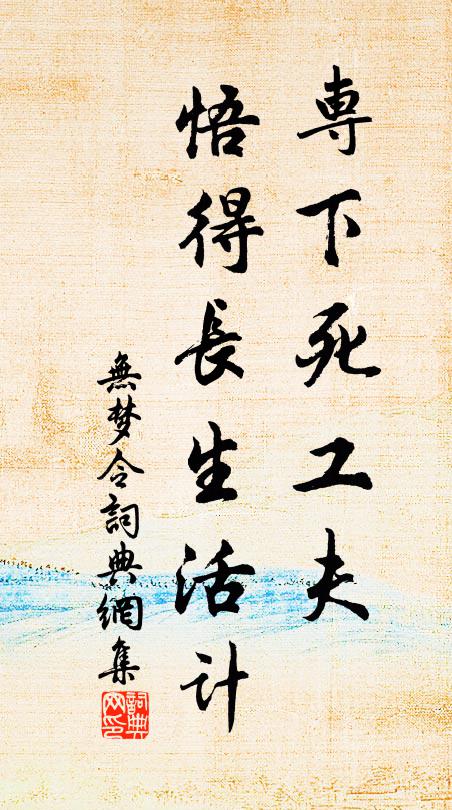 専下死工夫
悟得長生活计
無梦令詞典網集
詞典
网印